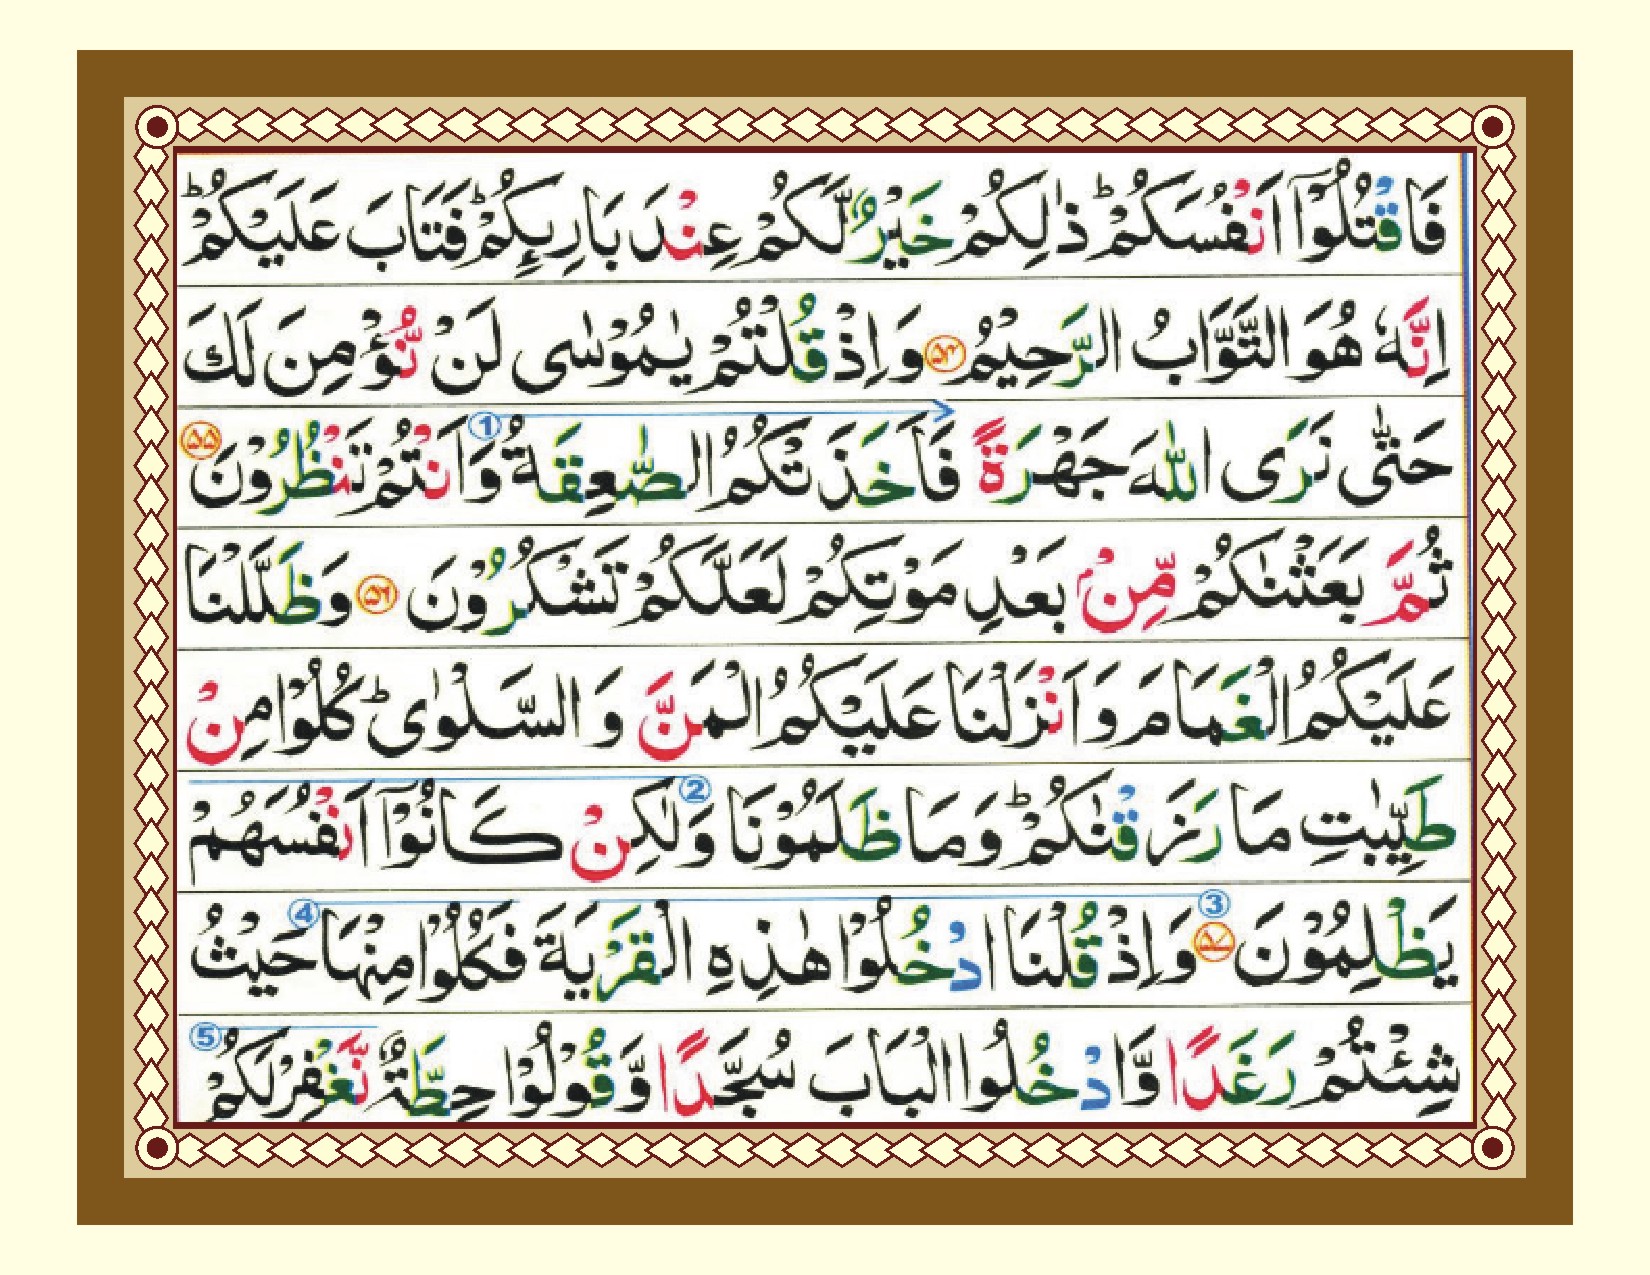 فَاقْتُلُوْٓا اَنْفُسَكُمْ ؕ ذٰلِكُمْ خَيْرٌ لَّكُمْ عِنْدَ بَارِئِكُمْ ؕ فَتَابَ عَلَيْكُمْ ؕ
اِنَّهٗ هُوَ التَّوَّابُ الرَّحِيْمُ ۵۴ وَاِذْ قُلْتُمْ يٰمُوْسٰى لَنْ نُّؤْمِنَ لَكَ
حَتّٰى نَرَى اللّٰهَ جَهْرَةً فَاَخَذَتْكُمُ الصّٰعِقَةُ 1 وَاَنْتُمْ تَنْظُرُوْنَ ۵۵
ثُمَّ بَعَثْنٰكُمْ مِّنْۢ بَعْدِ مَوْتِكُمْ لَعَلَّكُمْ تَشْكُرُوْنَ ۵۶ وَظَلَّلْنَا
عَلَيْكُمُ الْغَمَامَ وَاَنْزَلْنَا عَلَيْكُمُ الْمَنَّ وَالسَّلْوٰى ؕ كُلُوْا مِنْ
طَيِّبٰتِ مَا رَزَقْنٰكُمْ ؕ وَمَا ظَلَمُوْنَا 2 وَلٰكِنْ كَانُوْٓا اَنْفُسَهُمْ
يَظْلِمُوْنَ ۵۷ 3 وَاِذْ قُلْنَا ادْخُلُوْا هٰذِهِ الْقَرْيَةَ فَكُلُوْا مِنْهَا 4 حَيْثُ
شِئْتُمْ رَغَدًا وَّادْخُلُوا الْبَابَ سُجَّدًا وَّقُوْلُوْا حِطَّةٌ نَّغْفِرْ لَكُمْ 5